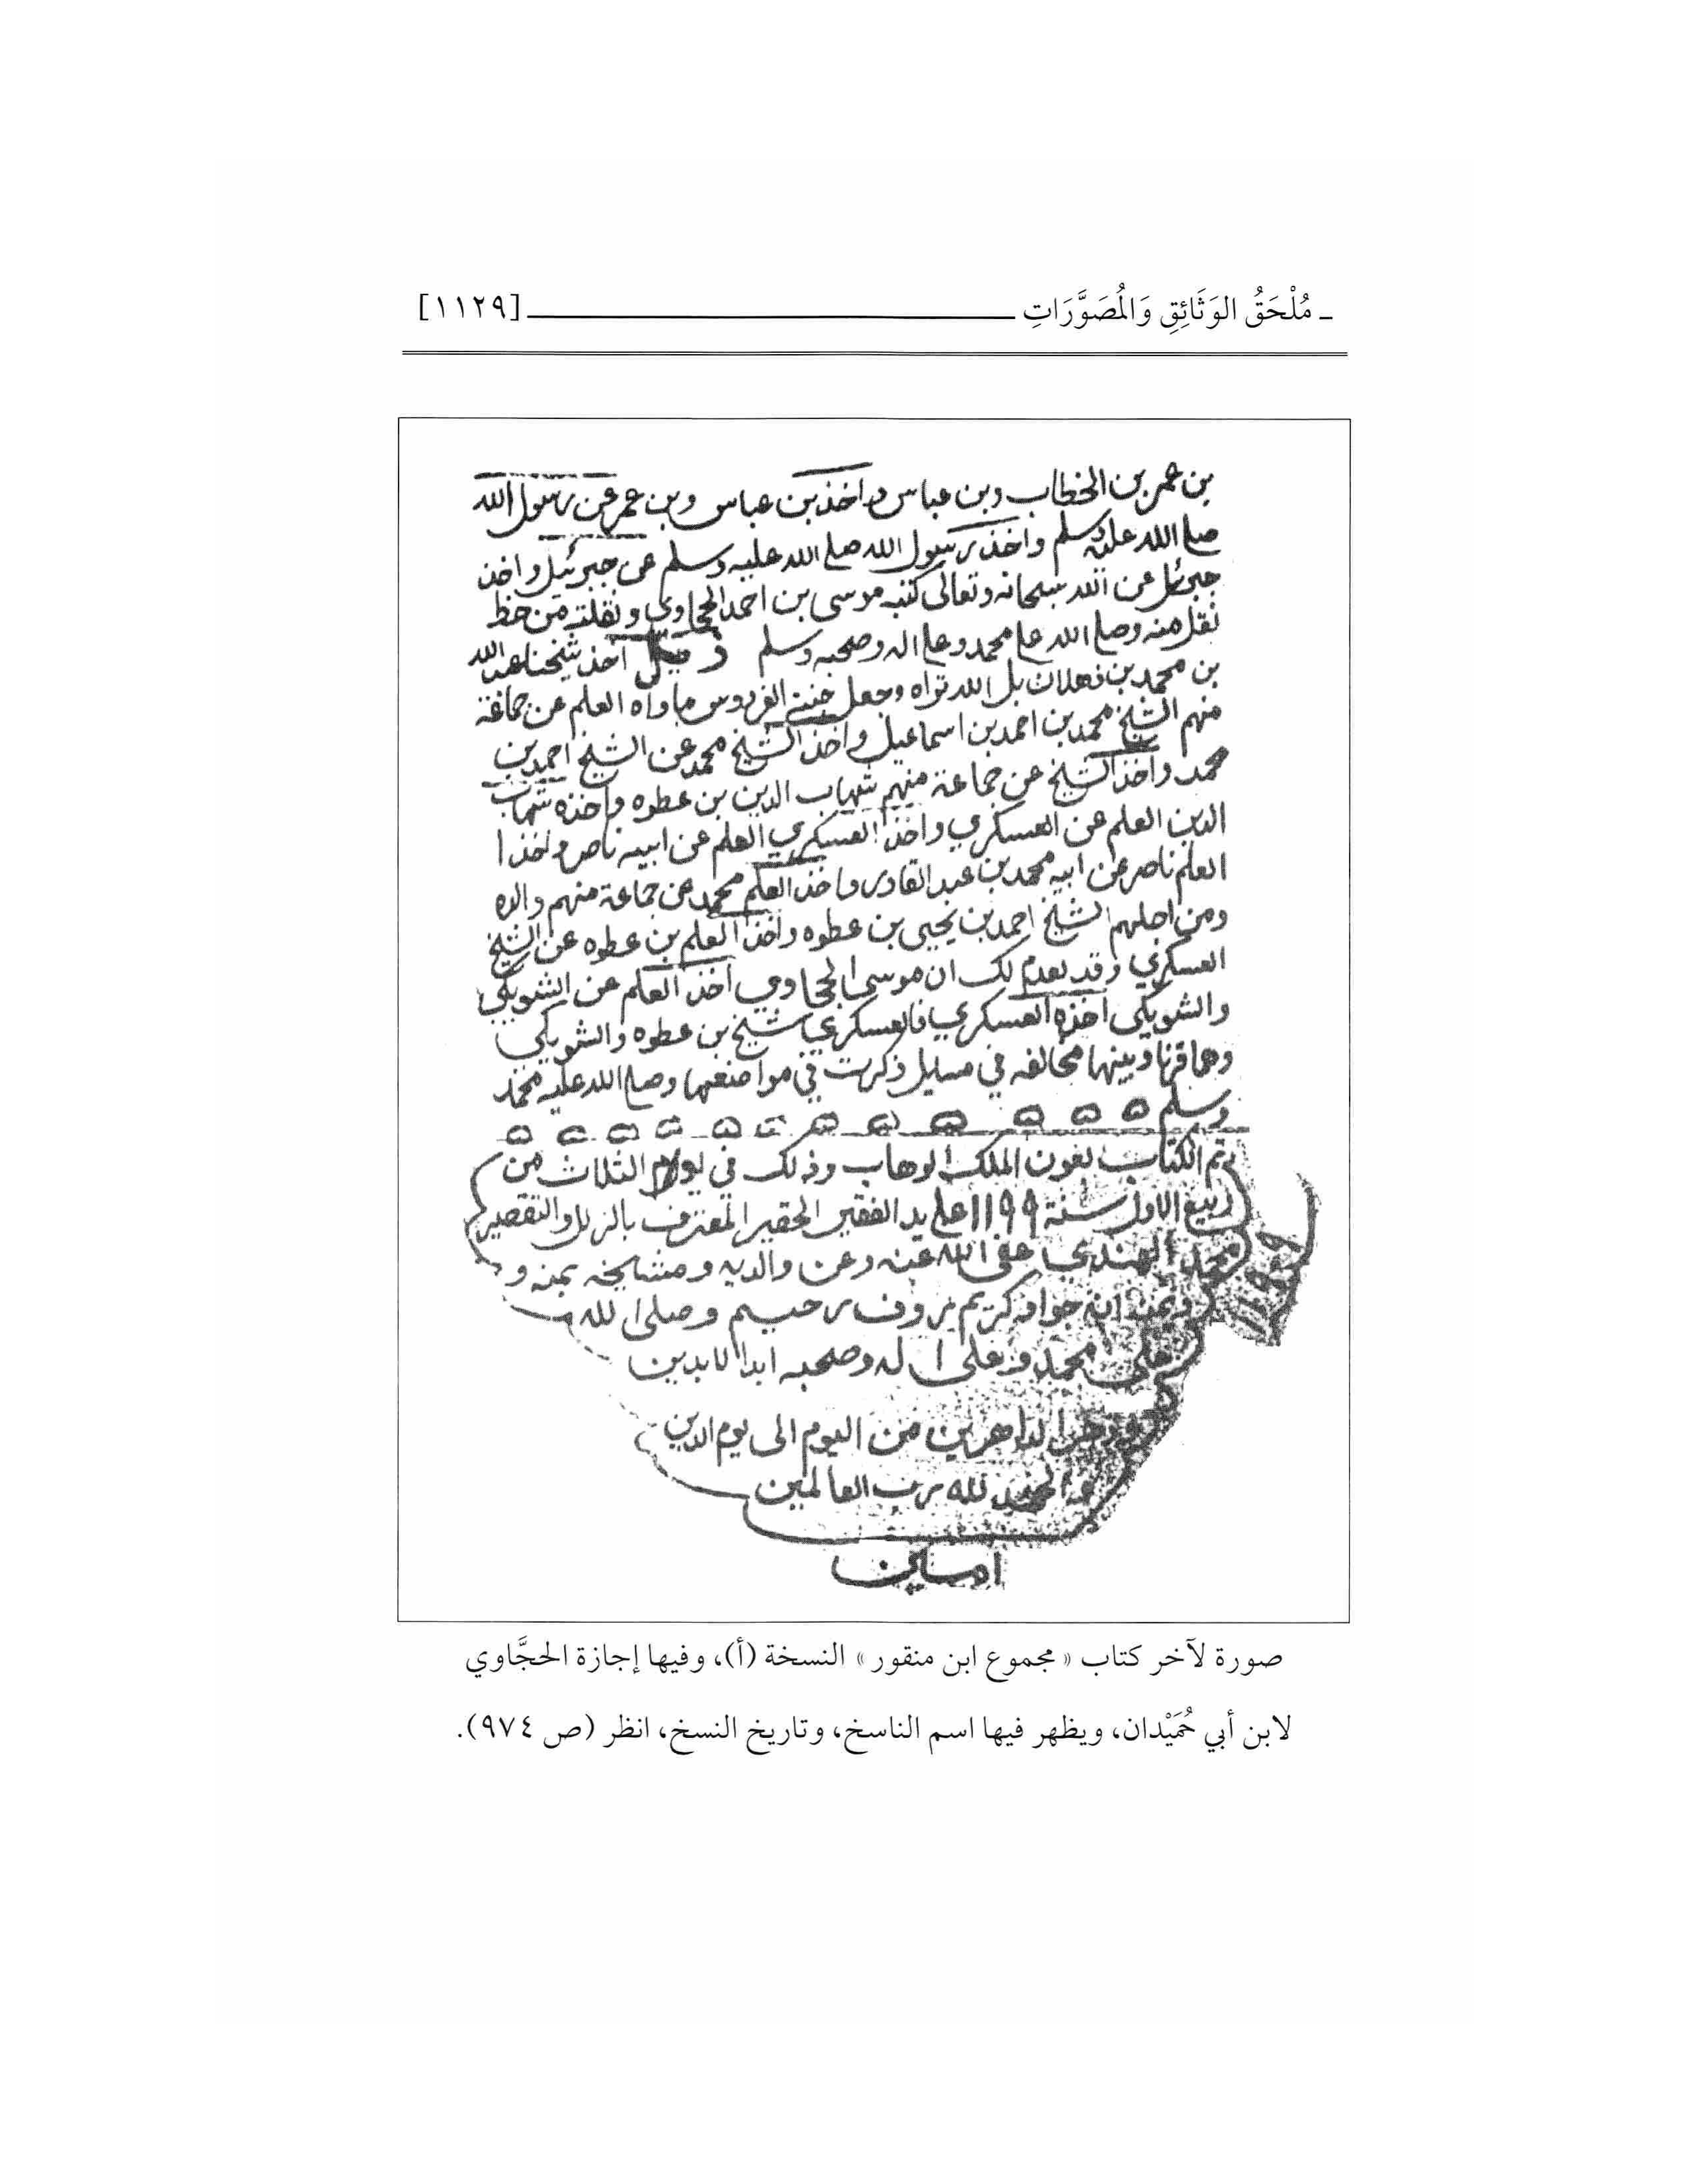 ـ مُلْحَقُ الوَثَائِقِ وَالمُصَوَّرَاتِ [١١٢٩]
بن عمر بن الخطاب وبن عباس واخذ بن عباس وبن عمر عن رسول الله
صلى الله عليه وسلم واخذ رسول الله صلى الله عليه وسلم عن جبرئيل واخذ
جبرئيل عن الله سبحانه وتعالى كتبه موسى بن احمد الحجاوي ونقلته من خط
نقل منه وصلى الله على محمد وعلى اله وصحبه وسلم اخذ شيخنا عبد الله
بن محمد بن ذهلان بل الله ثراه وجعل جنة الفردوس ماواه العلم عن جماعة
منهم الشيخ محمد بن احمد بن اسماعيل واخذ الشيخ محمد عن الشيخ احمد بن
محمد واخذ الشيخ عن جماعة منهم شهاب الدين بن عطوه واخذه شهاب
الدين العلم عن العسكري واخذ العسكري العلم عن ابيه ناصر واخذ ا
العلم ناصر عن ابيه محمد بن عبد القادر واخذ العلم محمد عن جماعة منهم والده
ومن اجلهم الشيخ احمد بن يحيى بن عطوه واخذ العلم بن عطوه عن الشيخ
العسكري وقد تقدم لك ان موسى الحجاوي اخذ العلم عن الشويكي
والشويكي اخذه العسكري فالعسكري شيخ بن عطوه والشويكي
وهما قرنا وبينهما مخالفه في مسايل ذكرت في مواضعها وصلى الله عليه محمد
وسلم
تم الكتاب بعون الملك الوهاب وذلك في يوم الثلاث من
ربيع الاول سنة ١١٩٩ على يد الفقير الحقير المعترف بالزلل والتقصير
محمد الهندي عفى الله عنه وعن والديه ومشايخه بمنه و
ويمنه انه جواد كريم روف رحيم وصلى الله
على محمد وعلى اله وصحبه ابد الابدين
ودهر الداهرين من اليوم الى يوم الدين
والحمد لله رب العالمين
امين
صورة لآخر كتاب « مجموع ابن منقور » النسخة (أ)، وفيها إجازة الحجَّاوي
لابن أبي حُمَيْدان، ويظهر فيها اسم الناسخ، وتاريخ النسخ، انظر (ص ٩٧٤).